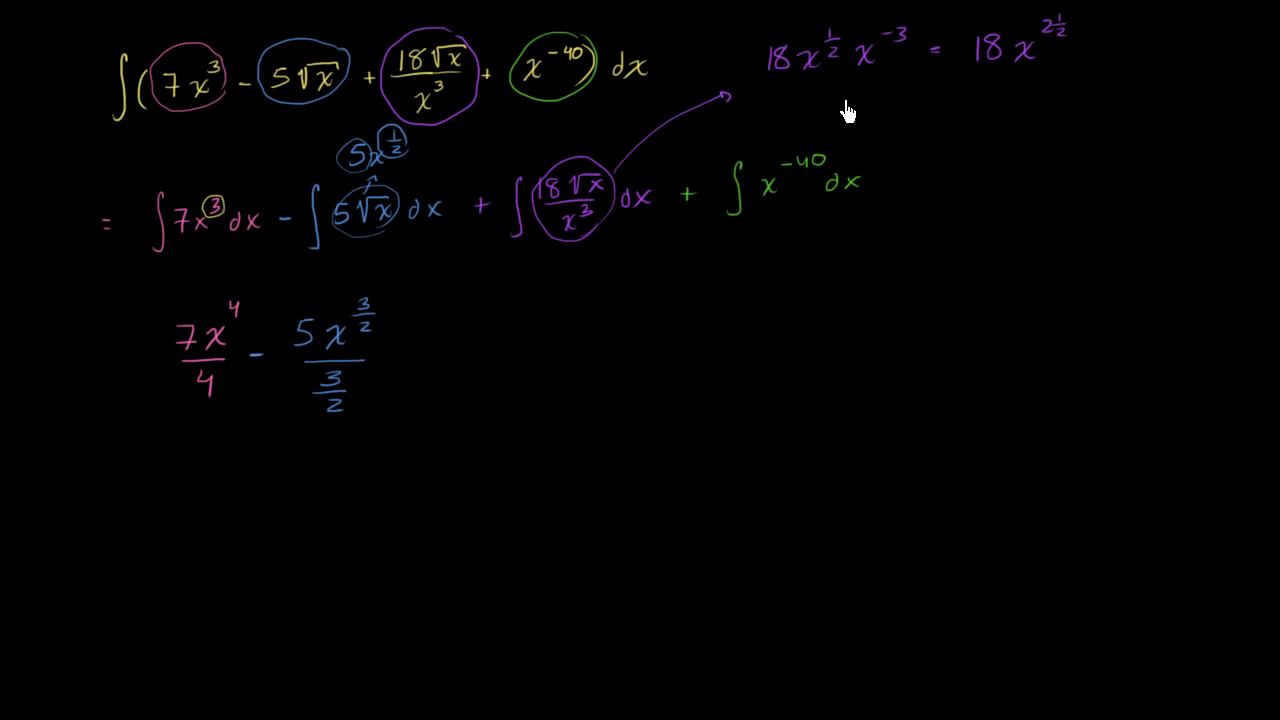 ∫(7x³ - 5√x + 18√x/x³ + x⁻⁴⁰) dx
18x^(1/2) x⁻³ = 18x^(2 1/2)
5x^(1/2)
= ∫7x³ dx - ∫5√x dx + ∫18√x/x³ dx + ∫x⁻⁴⁰ dx
7x⁴/4 - 5x^(3/2)/(3/2)